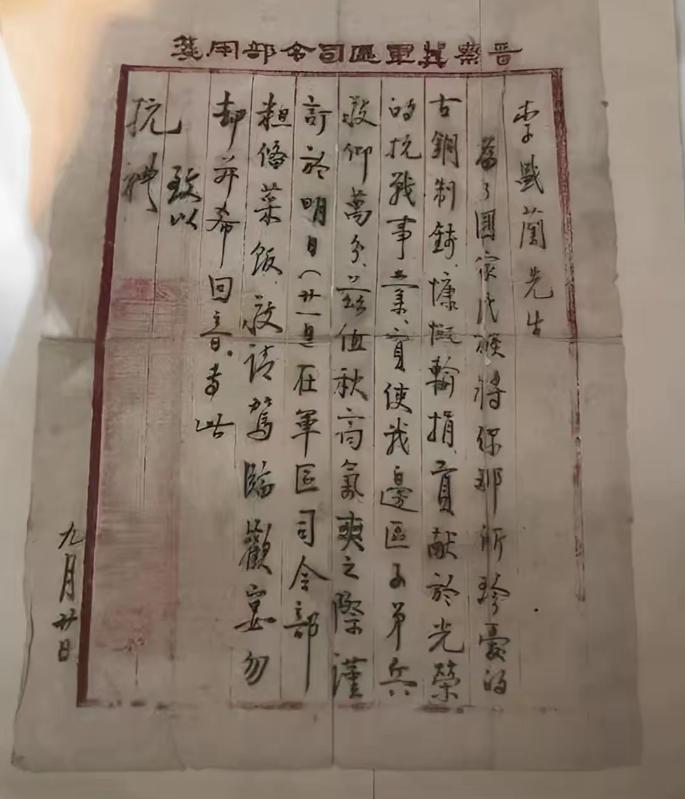 晋察冀軍區司令部用箋
李先生
為了國家民族将你那所珍愛的
古銅制錢、慷慨輸捐、貢献於光榮
的抗战事業、實使我邊區子弟兵
敬仰萬分、茲值秋高氣爽之際謹
訂於明日(廿一日)在軍區司令部
粗俻菜飯、敬請駕臨歡宴勿
却并希回音、专此
致以
抗禮
九月廿日